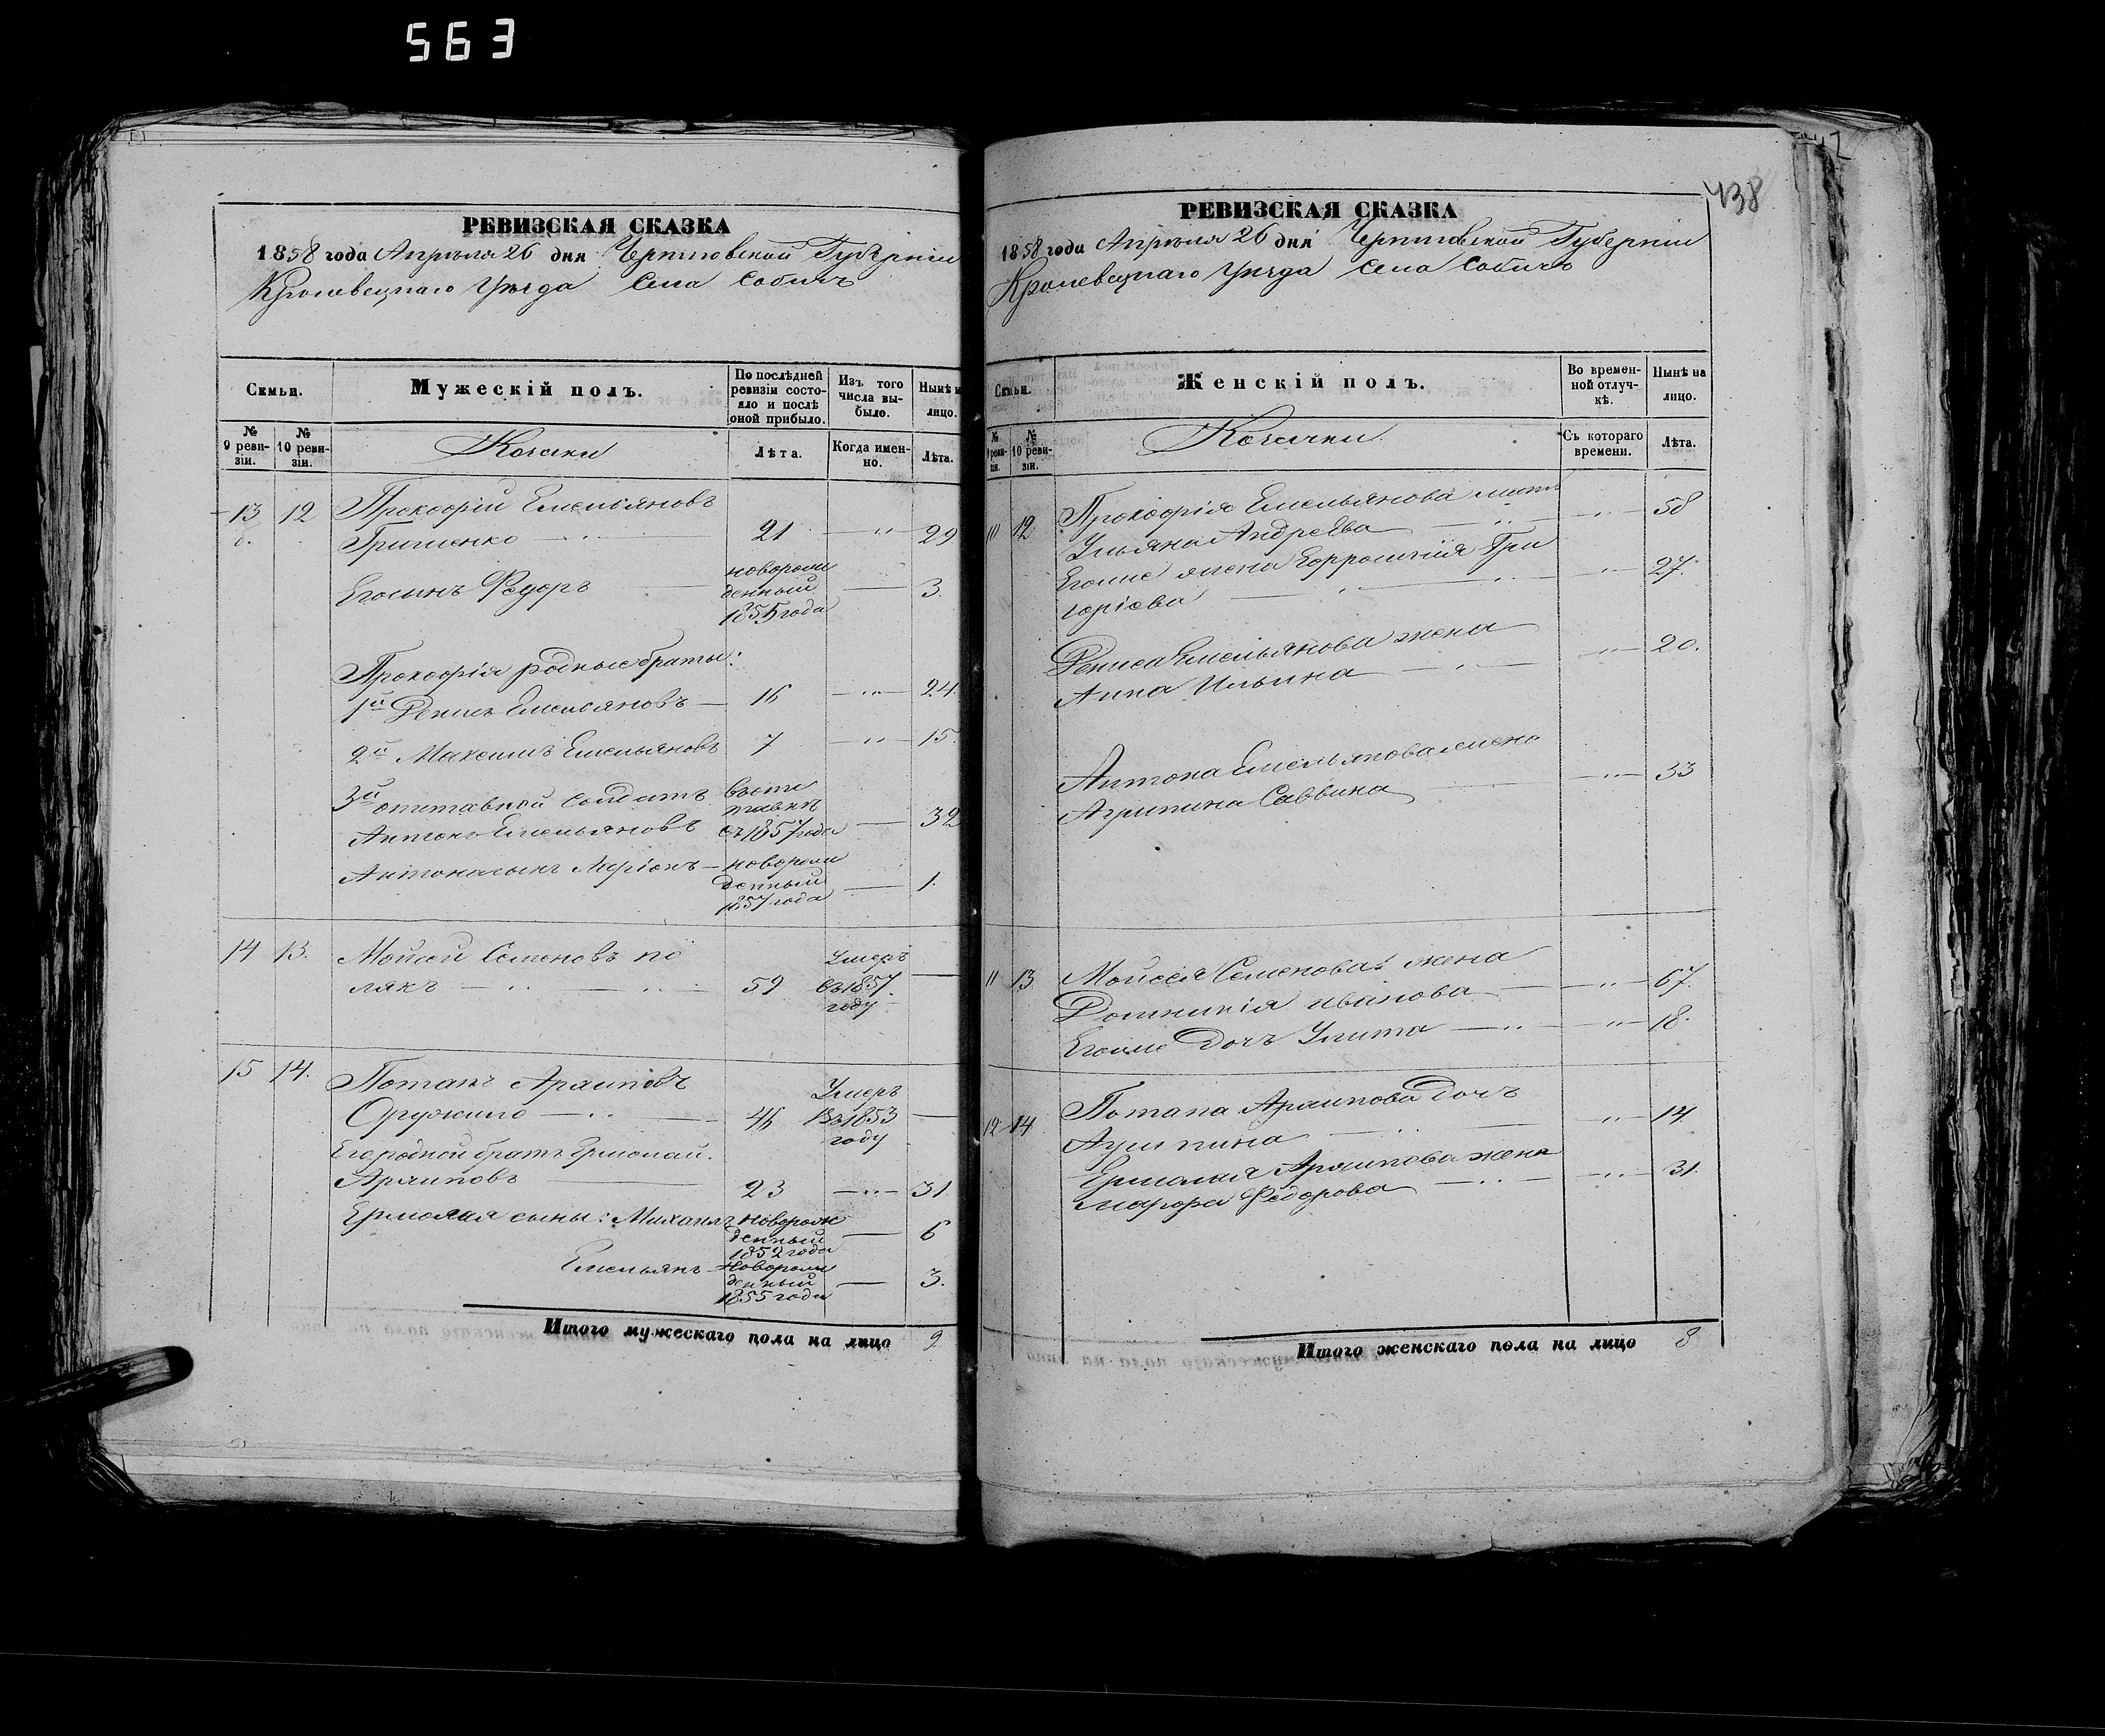 563
РЕВИЗСКАЯ СКАЗКА
1858 года Апрѣля 26 дня Черниговской Губерніи
Кролевецкаго Уѣзда Села Собичъ
Семьи.
Мужескій полъ.
По послѣдней ревизіи состояло и послѣ оной прибыло.
Изъ того числа выбыло.
Нынѣ на лицо.
№ 9 ревизіи.
№ 10 ревизіи.
Козаки
Лѣта.
Когда именно.
Лѣта.
13 12 Прокофій Емельяновъ
Гриценко 21 29
Его сынъ Федоръ новорожденный 1855 года 3.
Прокофія родные браты:
1й Денисъ Емельяновъ 16 24.
2й Максимъ Емельяновъ 7 15.
3й отставной солдатъ
Антонъ Емельяновъ въ отставкѣ съ 1857 года 32
Антона сынъ Маріонъ новорожденный 1857 года 1.
14 13. Мойсей Семеновъ По
лякъ 59 Умеръ въ 1857 году
15 14. Потапъ Архиповъ
46 Умеръ въ 1853 году
Его родной братъ Ермолай
Архиповъ 23 31.
Ермолая сыны: Михаилъ новорожденный 1852 года 6
Емельянъ новорожденный 1855 года 3.
Итого мужескаго пола на лицо 9
438
РЕВИЗСКАЯ СКАЗКА
1858 года Апрѣля 26 дня Черниговской Губерніи
Кролевецкаго Уѣзда Села Собичъ
Семьи.
Женскій полъ.
Во временной отлучкѣ.
Нынѣ на лицо.
№ 9 ревизіи.
№ 10 ревизіи.
Козачки.
Съ котораго времени.
Лѣта.
12 Прокофія Емельянова мать
Ульяна Андреева 58
Егоже жена Гри
горіева 27.
Дениса Емельянова жена
Анна Ильина 20.
Антона Емельянова жена
Агрипина Саввина 33
11 13 Мойсея Семенова жена
Домникія Иванова 67.
Егоже дочь Улита 18.
12 14 Потапа Архипова дочь
14.
Ермолая Архипова жена
Марфа Федорова 31.
Итого женскаго пола на лицо 8